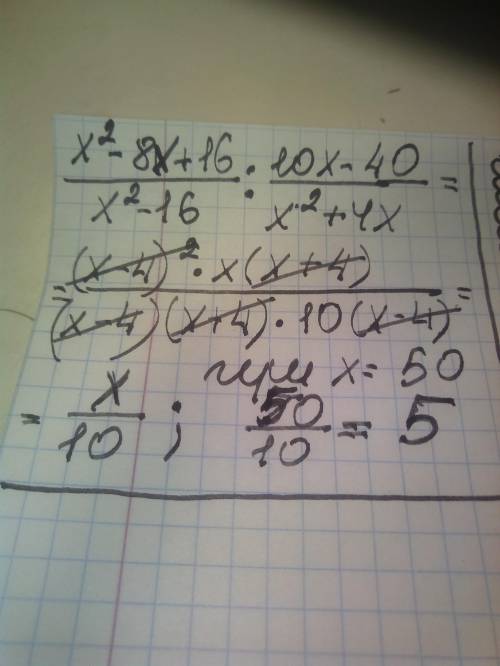 x²-8x+16 / x²-16 : 10x-40 / x²+4x =
= (x-4)² · x(x+4) / (x-4)(x+4) · 10(x-4) =
при x= 50
= x/10 ; 50/10 = 5